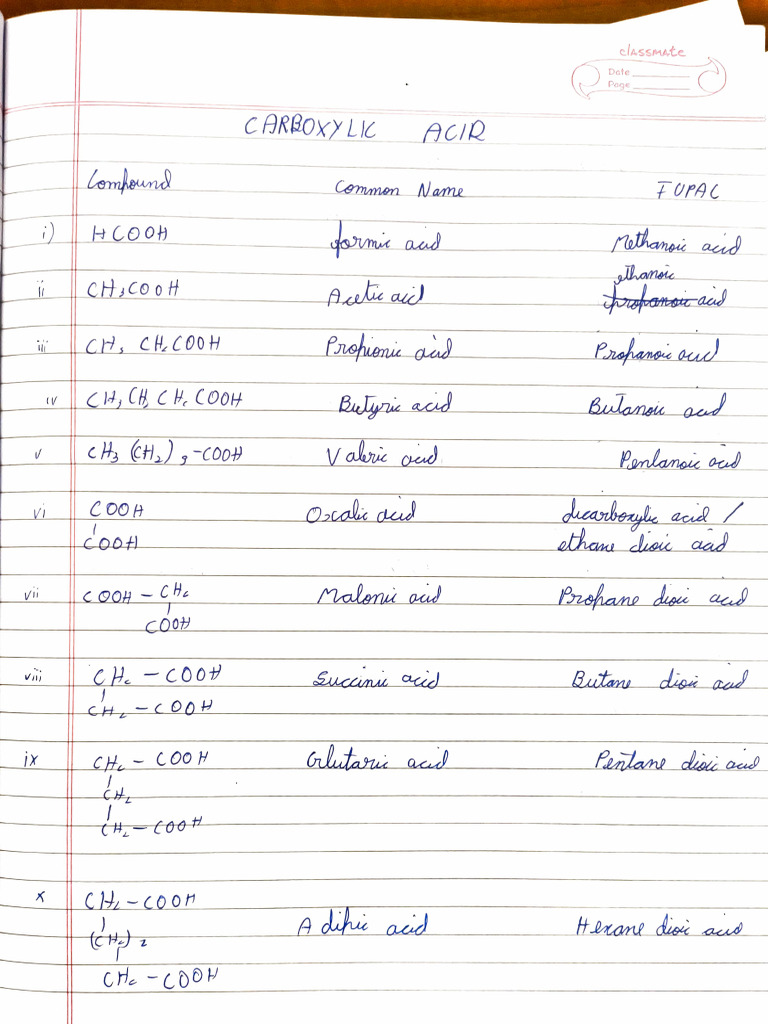 classmate
Date
Page
CARBOXYLIC ACID
Compound Common Name IUPAC
i) HCOOH formic acid Methanoic acid
ethanoic
ii CH3COOH Acetic acid propanoic acid
iii CH3 CH2COOH Propionic acid Propanoic acid
iv CH3CH2CH2COOH Butyric acid Butanoic acid
v CH3 (CH2)3-COOH Valeric acid Pentanoic acid
vi COOH Oxalic acid dicarboxylic acid /
COOH ethane dioic acid
vii COOH - CH2 Malonic acid Propane dioic acid
COOH
viii CH2 - COOH Succinic acid Butane dioic acid
CH2 - COOH
ix CH2 - COOH Glutaric acid Pentane dioic acid
CH2
CH2 - COOH
x CH2 - COOH
(CH2)2 Adipic acid Hexane dioic acid
CH2 - COOH